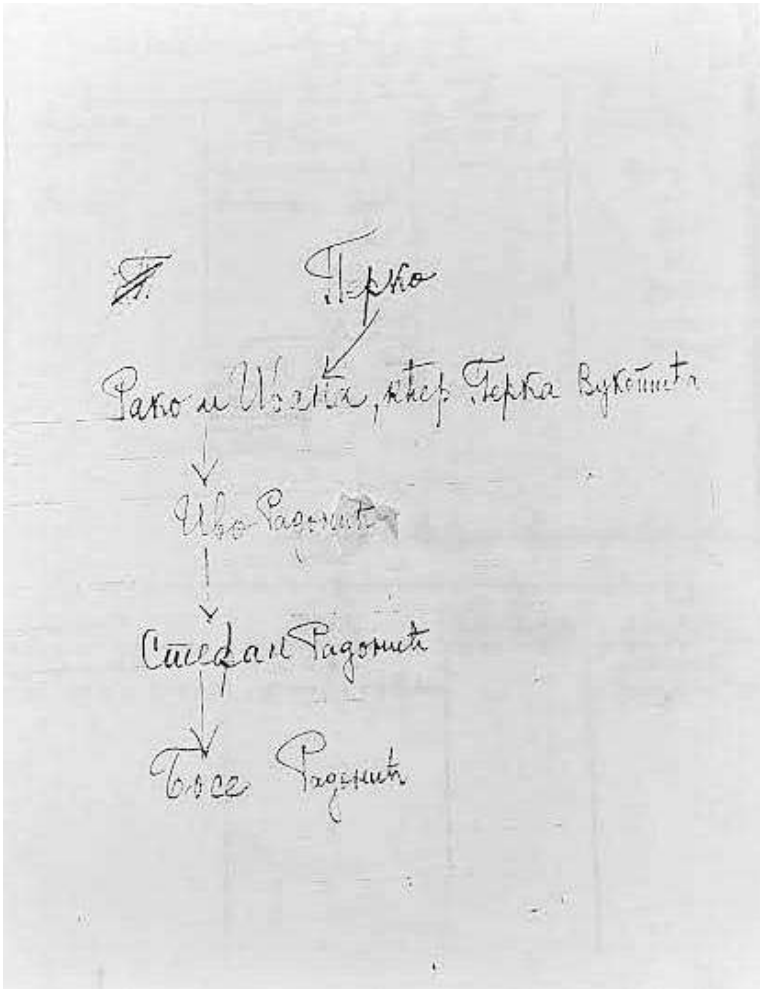 Перко
Рако и Ивана, кћер Перка Вукотић
Иво Радонић
Стефан Радонић
Босе Радонић